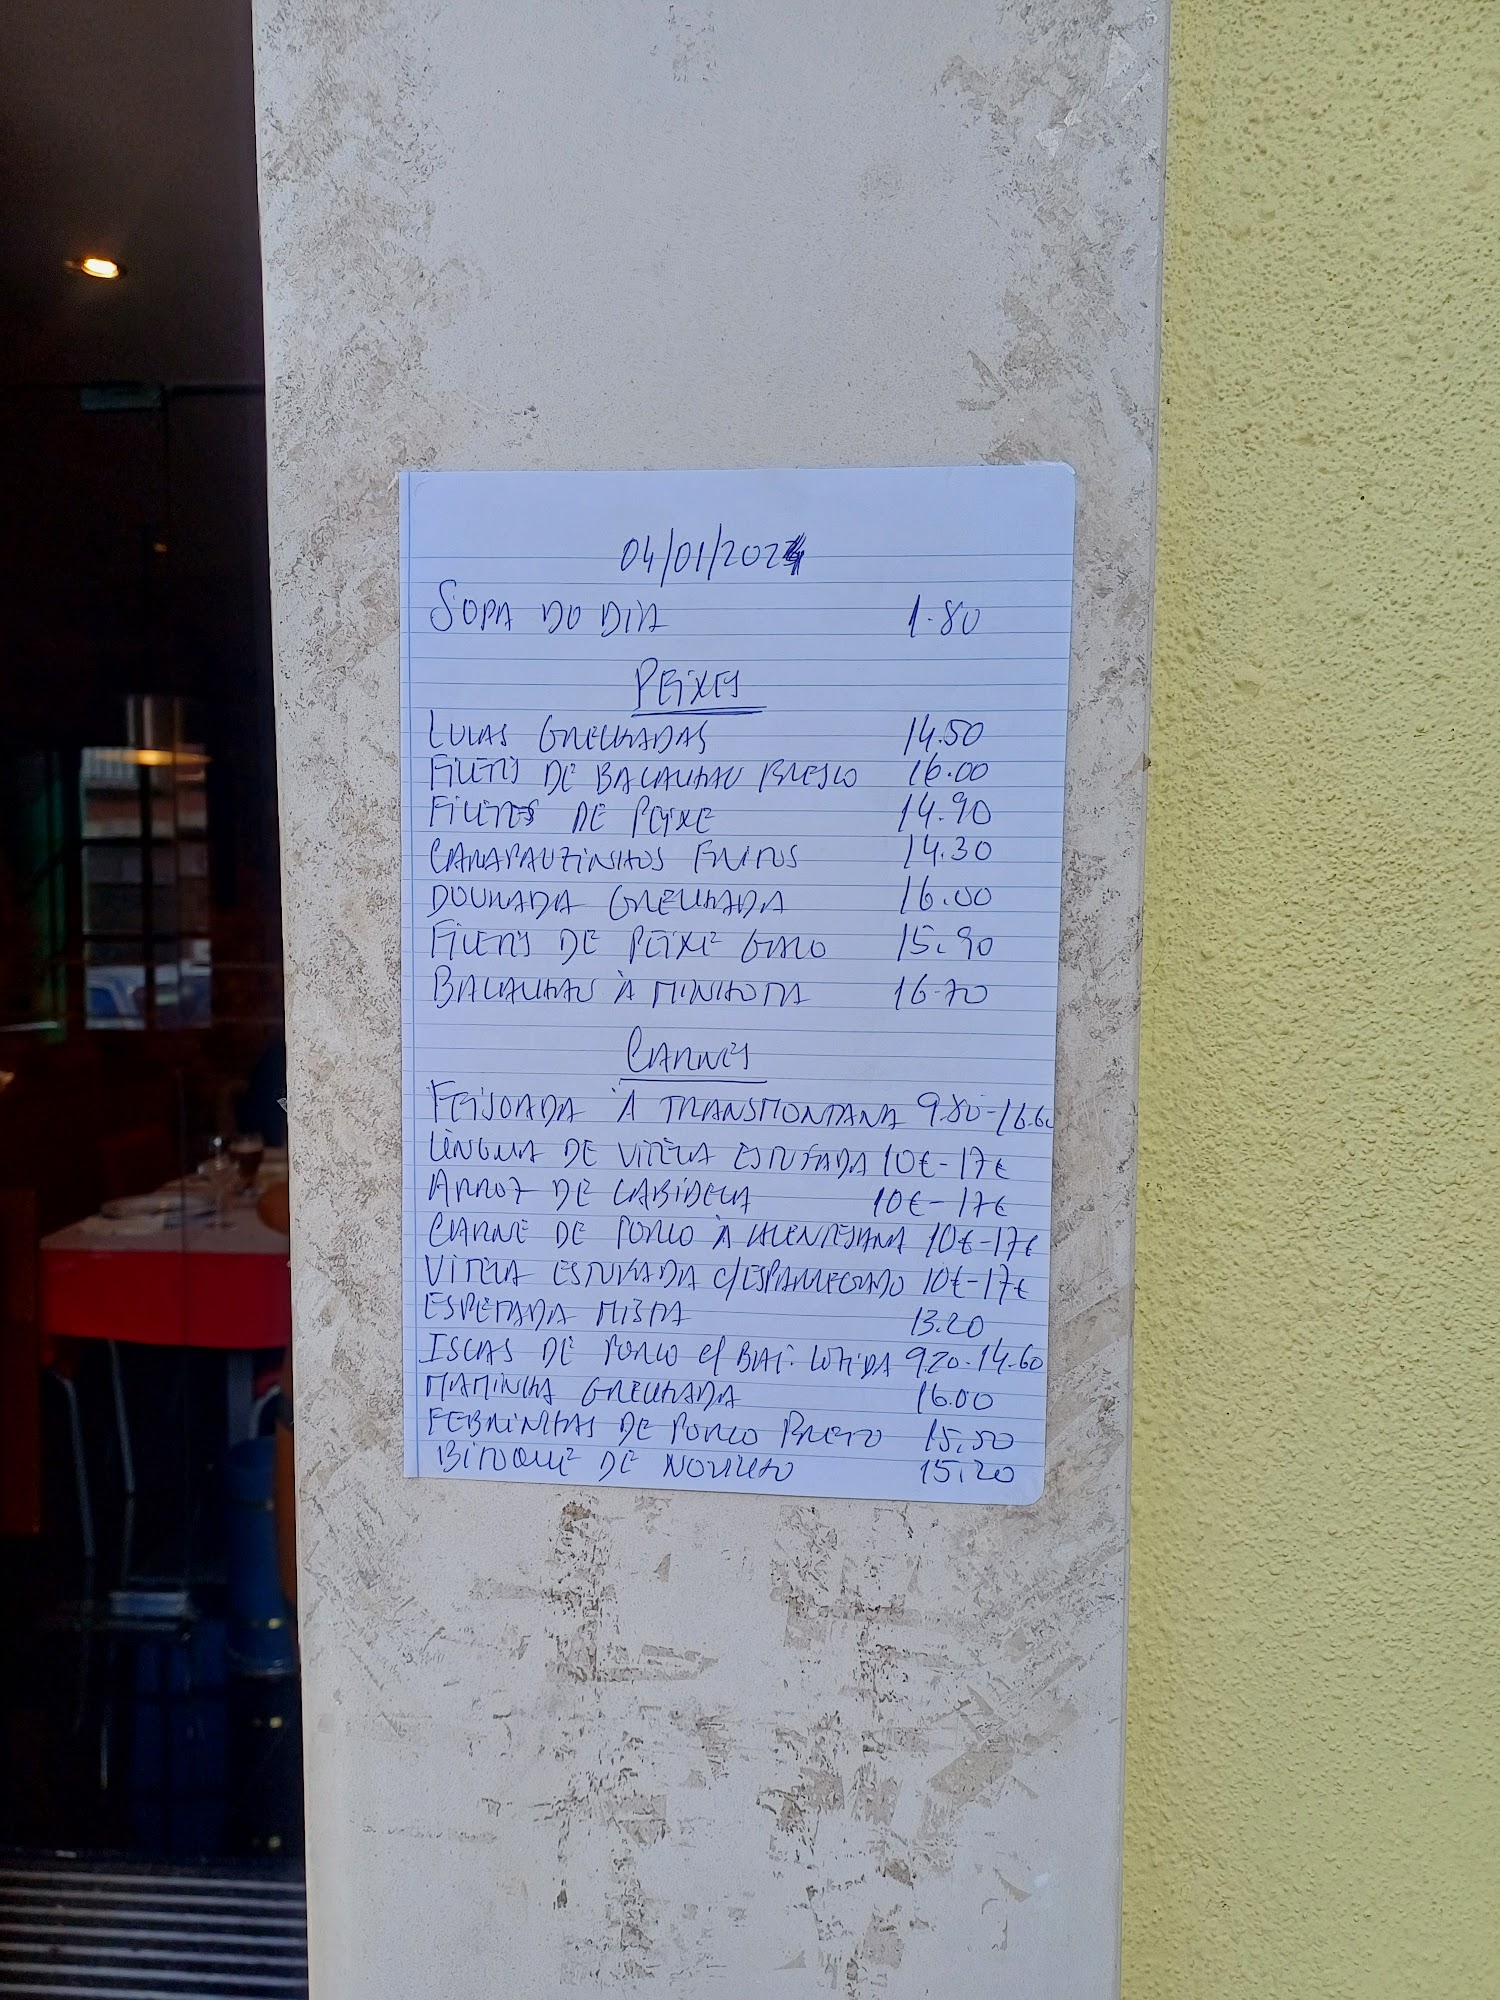 04/01/2024
SOPA DO DIA 1.80
PEIXES
LULAS GRELHADAS 14.50
FILETES DE BACALHAU FRESCO 16.00
FILETES DE PEIXE 14.90
CARAPAUZINHOS FRITOS 14.30
DOURADA GRELHADA 16.00
FILETES DE PEIXE GALO 15.90
BACALHAU À MINHOTA 16.70
CARNES
FEIJOADA À TRANSMONTANA 9.80-16.60
LÍNGUA DE VITELA ESTUFADA 10€-17€
ARROZ DE CABIDELA 10€-17€
CARNE DE PORCO À ALENTEJANA 10€-17€
VITELA ESTUFADA C/ESPARREGADO 10€-17€
ESPETADA MISTA 13.20
ISCAS DE PORCO C/ BAT. COZIDA 9.20-14.60
MAMINHA GRELHADA 16.00
FEBRINHAS DE PORCO PRETO 15.50
BITOQUE DE NOVILHO 15.20